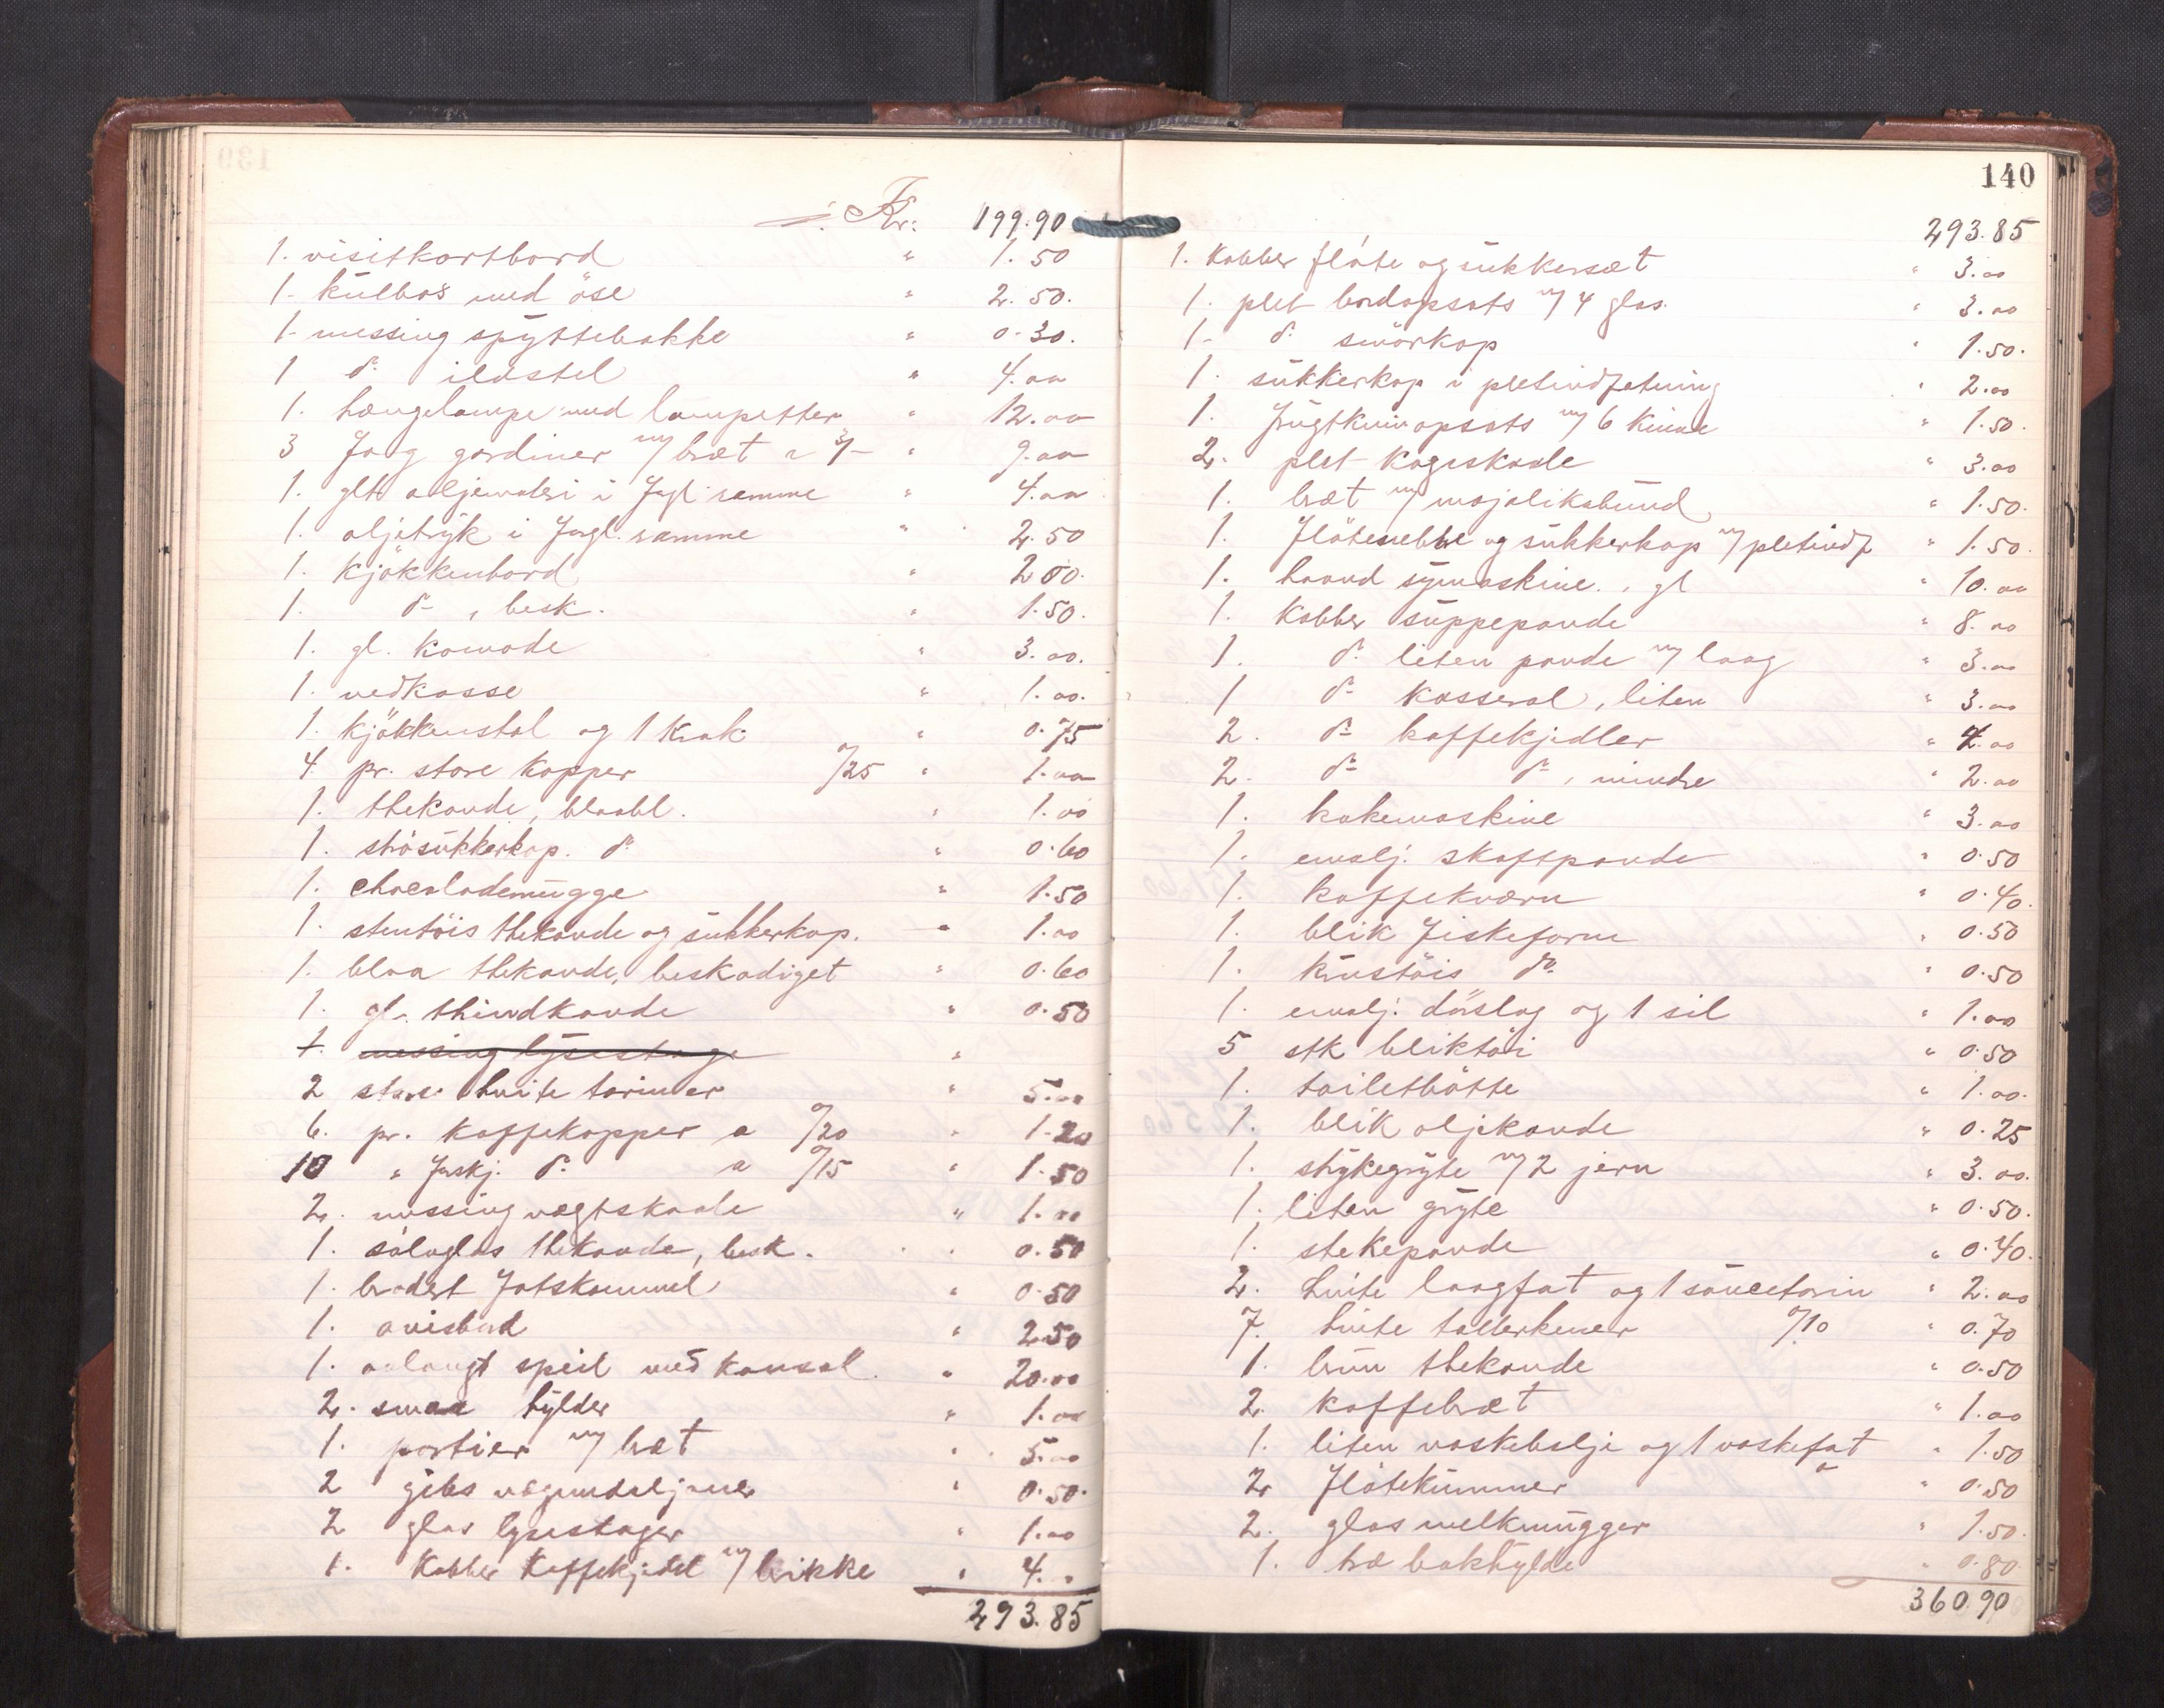 Kr: 199.90
1. visitkortbord " 1.50
1. kulbox med öse " 2.50.
1. messing spyttebakke " 0.30.
1 do ildstel " 4.00
1. hængelampe med lampetter " 12.00
3 fag gardiner m/ bræt a 3/- " 9.00
1. glt oljemaleri i fgl. ramme " 4.00
1. oljetryk i forgl. ramme " 2.50
1. kjökkenbord " 2.00.
1. do , besk. " 1.50.
1. gl. komode " 3.00.
1. vedkasse " 1.00.
1. kjökkenstol og 1 krak " 0.75
4 pr. store kopper 0/25 " 1.00
1. thekande, blaabl. " 1.00
1. strösukkerkop. do " 0.60
1. chocolademugge " 1.50
1. stentöis thekande og sukkerkop. " 1.00
1. blaa thekande, beskadiget " 0.60
1. gl. thindkande " 0.50
1. messing lysestage "
2 store hvite toriner " 5.00
6. pr. kaffekopper a 0/20 " 1.20
10 " forskj. do a 0/15 " 1.50
2. messing vægtskaale " 1.00
1. sölvglas thekande, besk. " 0.50
1. brodert fotskammel " 0.50
1. avisbord " 2.50
1. avlangt speil med konsol. " 20.00
2. smaa hylder " 1.00
1. portier m/ bræt " 5.00
2 gibs vægmedaljoner " 0.50.
2 glas lysestager " 1.00
1. Kobber Kaffekjedel m/ brikke " 4.00
293.85
140
293.85
1. Kobber flöte og sukkersæt " 3.00
1. plet bordopsats m/ 4 glas. " 3.00
1- do smörkop " 1.50.
1. sukkerkop i pletindfatning " 2.00
1. frugtknivopsats m/ 6 knive " 1.50.
2. plet kageskaale " 3.00
1. bræt m/ majolikabund " 1.50.
1. flötenebbe og sukkerkop m/ pletindf " 1.50.
1. haand symaskine, gl " 10.00
1. Kobber suppepande " 8.00
1. do liten pande m/ laag " 3.00
1 do kasserol, liten " 3.00
2. do kaffekjedler " 4.00
2. do do, mindre " 2.00
1. kokemaskine " 3.00
1. emalj. skaftpande " 0.50
1. kaffekværn " 0.40.
1. blik fiskeform " 0.50
1. krustöis do " 0.50
1. emalj. dörslag og 1 sil " 1.00
5 stk bliktöi " 0.50
1. toiletbötte " 1.00.
1. blik oljekande " 0.25
1. strykegryte m/ 2 jern " 3.00.
1. liten gryte " 0.50.
1. stekepande " 0.40.
2. hvite laagfat og 1 saucetorin " 2.00
7. hvite tallerkener 0/10 " 0.70
1. brun thekande " 0.50
2. kaffebræt " 1.00
1. liten vaskebalje og 1 vaskefat " 1.50
2 flötekummer " 0.50
2. glas melkmugger " 1.50.
1. træ bokhylde " 0.80
360.90